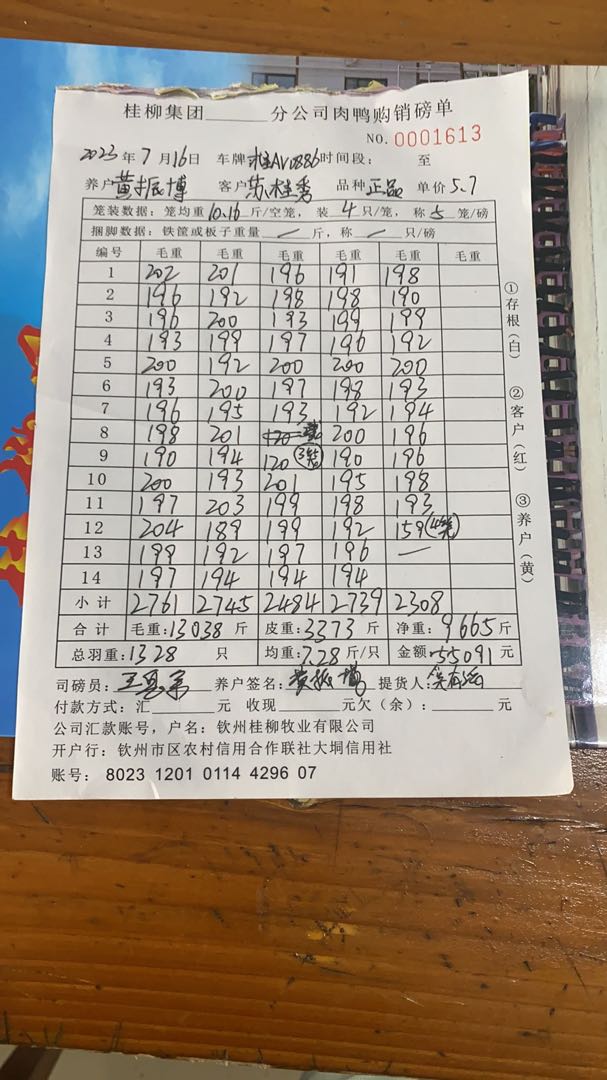 桂柳集团______分公司肉鸭购销磅单
NO.0001613
2023年7月16日 车牌桂AV0886时间段： 至
养户黄振博 客户苏桂秀 品种正品 单价5.7
笼装数据：笼均重10.16斤/空笼，装4只/笼，称5笼/磅
捆脚数据：铁筐或板子重量—斤，称—只/磅
编号 毛重 毛重 毛重 毛重 毛重 毛重
1 202 201 196 191 198
2 196 192 198 198 190
3 196 200 193 199 199
4 193 199 197 196 192
5 200 192 200 200 200
6 193 200 197 198 193
7 196 195 193 192 194
8 198 201 120 200 196
9 190 194 120 3笼 190 196
10 200 193 201 195 198
11 197 203 199 198 193
12 204 189 199 192 159 4笼
13 199 192 197 196 —
14 197 194 194 194
小计 2761 2745 2484 2739 2308
合计 毛重：13038斤 皮重：3373斤 净重：9665斤
总羽重：1328 只 均重：7.28斤/只 金额：55091元
司磅员： 养户签名：黄振博 提货人：
付款方式：汇______元 收现______元欠（余）：______元
公司汇款账号，户名：钦州桂柳牧业有限公司
开户行：钦州市区农村信用合作联社大垌信用社
账号： 8023 1201 0114 4296 07
①存根（白）
②客户（红）
③养户（黄）